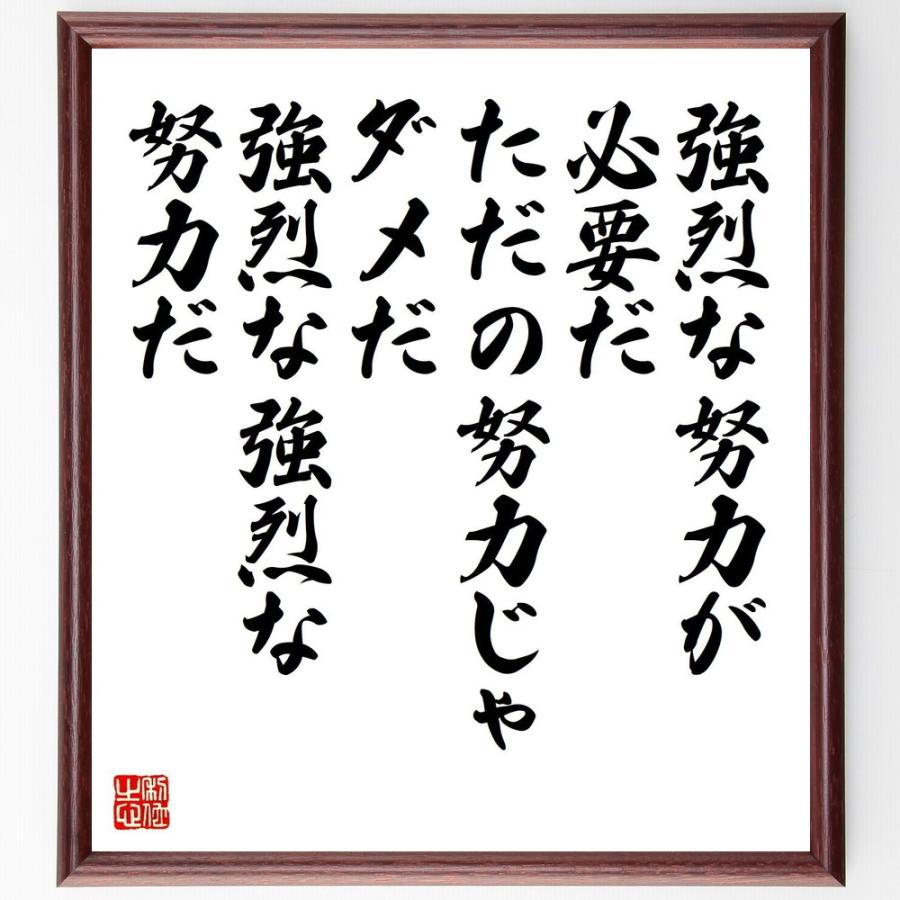 強烈な努力が
必要だ
ただの努力じゃ
ダメだ
強烈な強烈な
努力だ